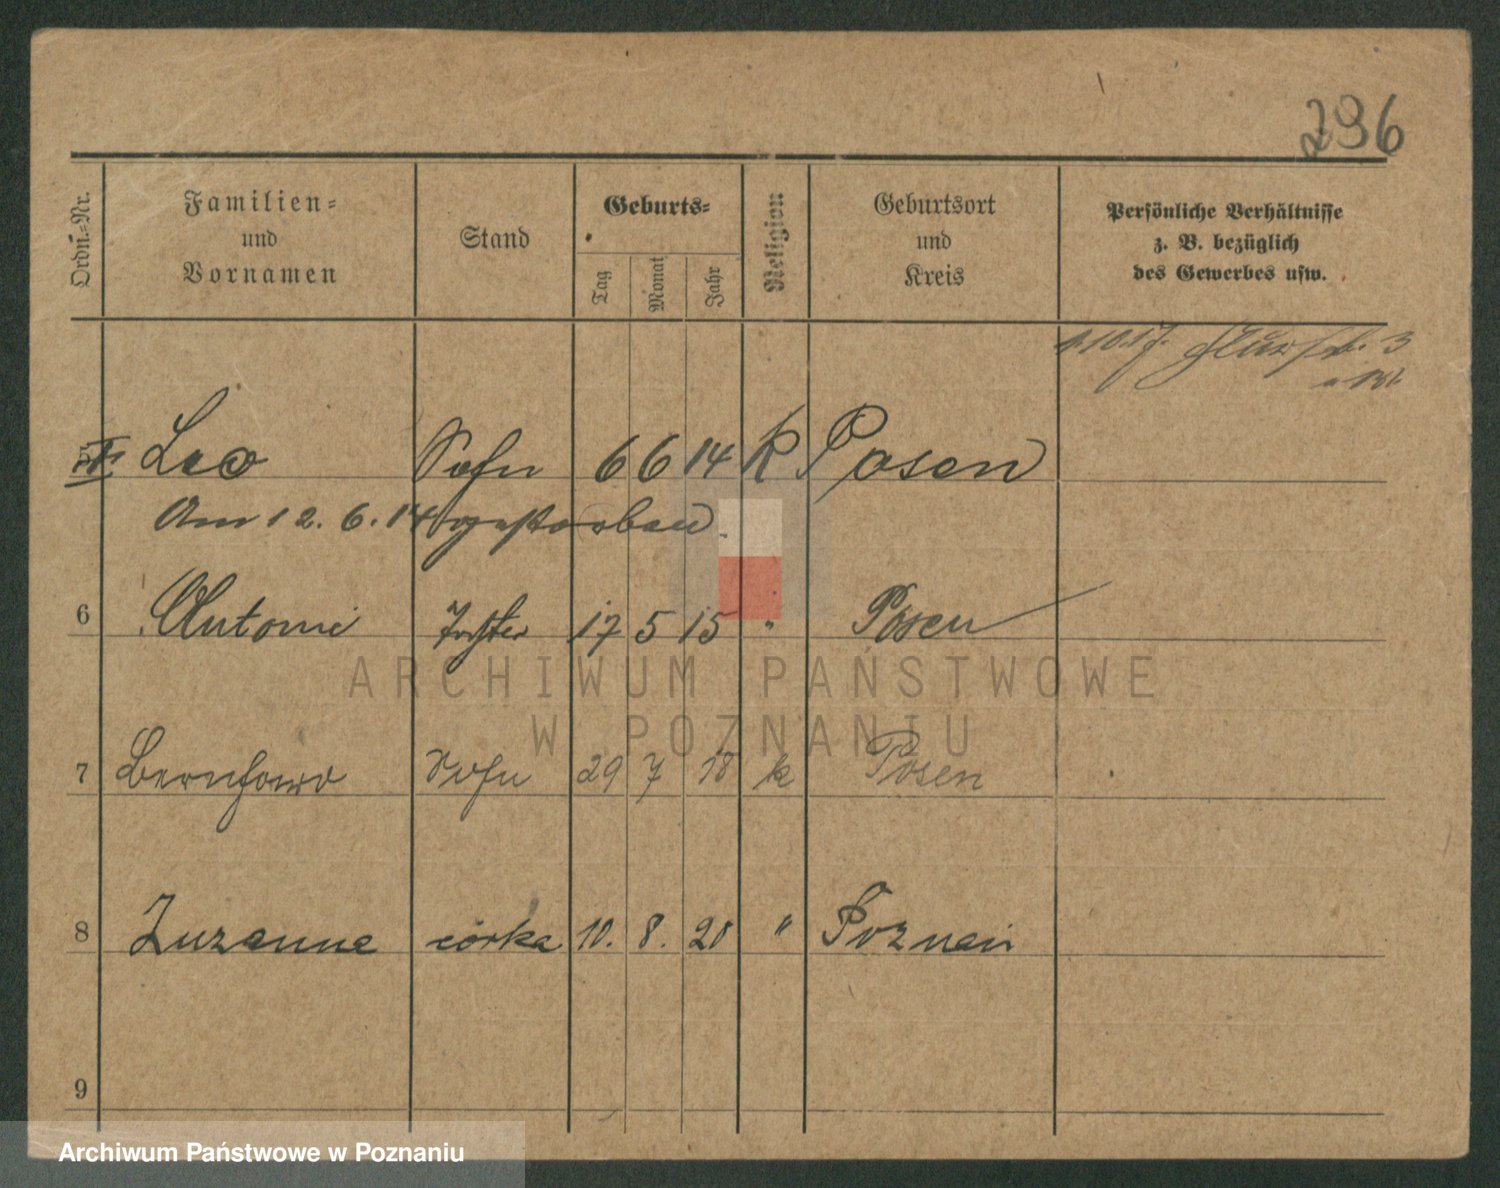 296
Ordn.-Nr.
Familien-
und
Vornamen
Stand
Geburts-
Tag
Monat
Jahr
Religion
Geburtsort
und
Kreis
Persönliche Verhältnisse
z. B. bezüglich
des Gewerbes usw.
3
Leo Sohn 6 6 14 k Posen
Am 12. 6. 14 gestorben
6 Antonie Tochter 17 5 15 " Posen
ARCHIWUM PAŃSTWOWE
W POZNANIU
7 Sohn 29 7 18 k Posen
8 Zuzanna córka 10. 8. 20 " Poznań
9
Archiwum Państwowe w Poznaniu